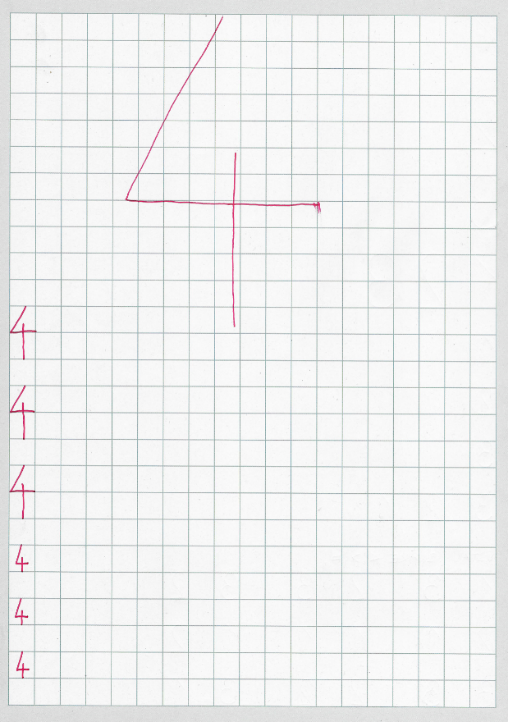 4
4
4
4
4
4
4